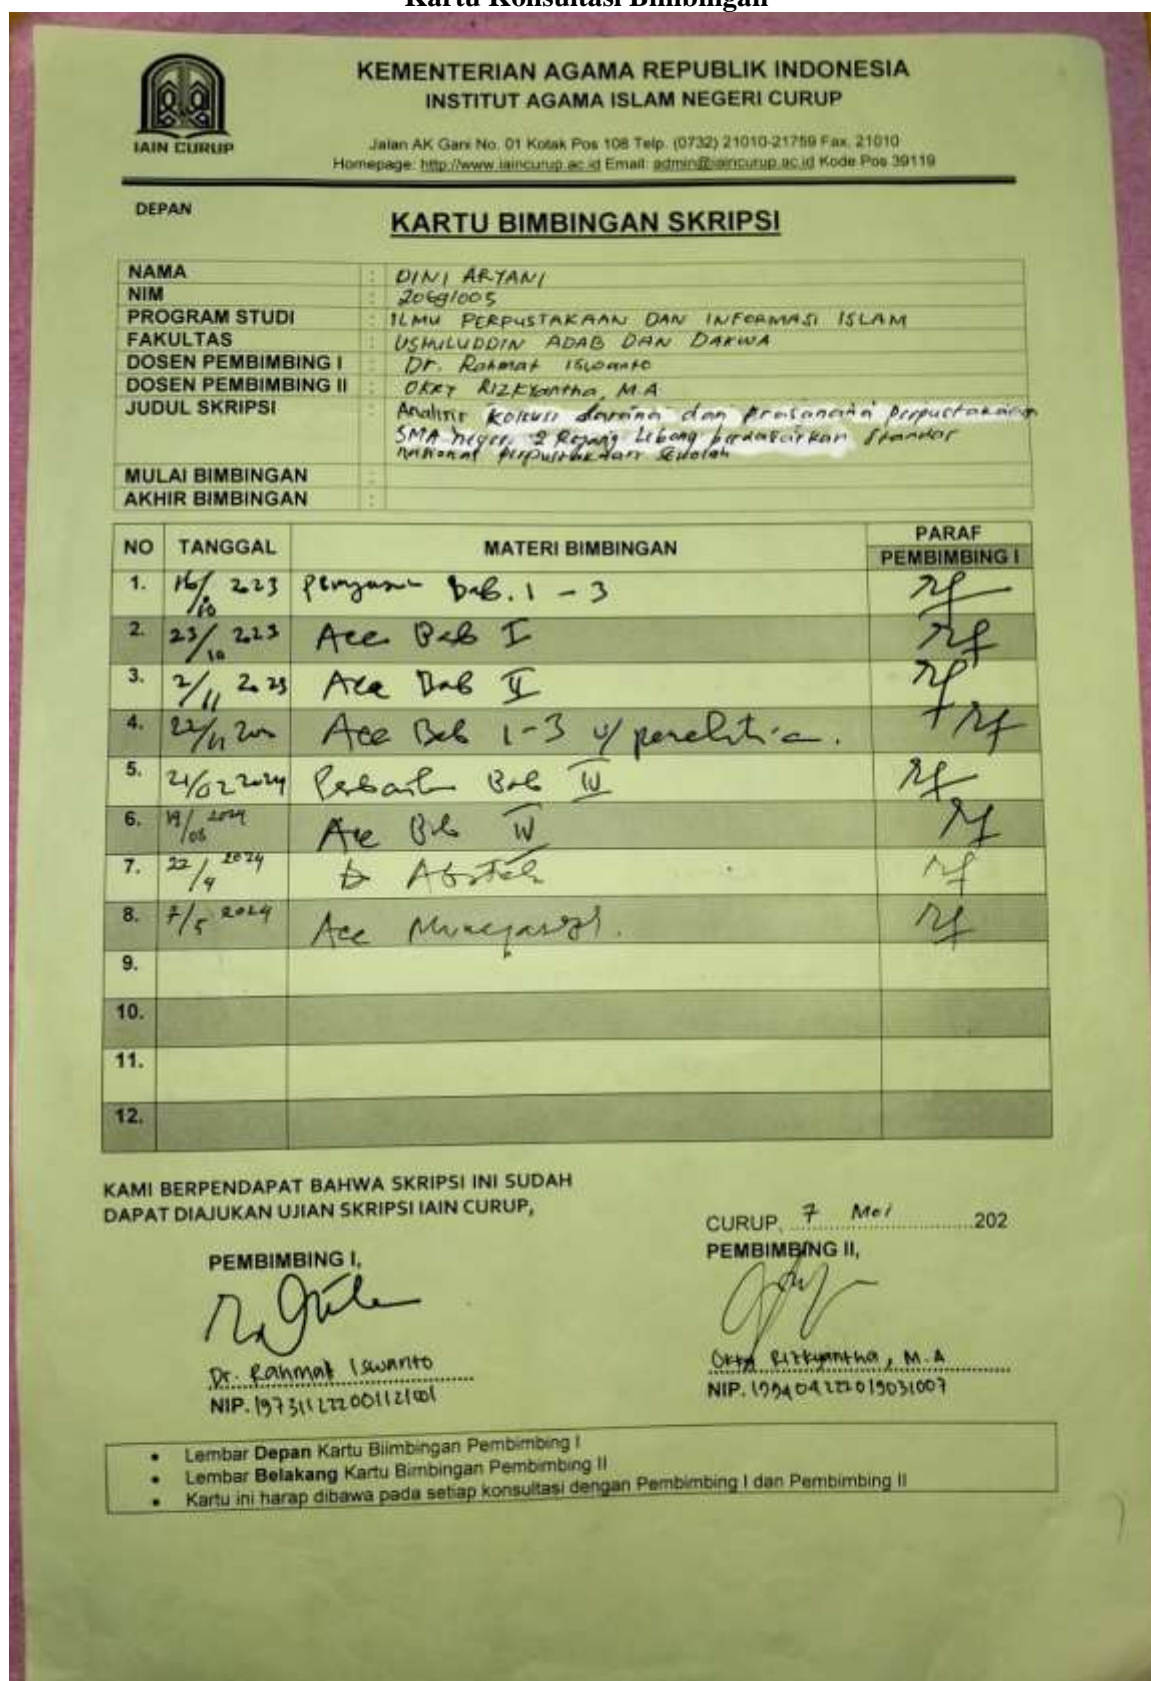 Kartu Konsultasi Bimbingan
KEMENTERIAN AGAMA REPUBLIK INDONESIA
INSTITUT AGAMA ISLAM NEGERI CURUP
IAIN CURUP
Jalan AK Gani No. 01 Kotak Pos 108 Telp. (0732) 21010-21759 Fax. 21010
Homepage: http://www.iaincurup.ac.id Email: admin@iaincurup.ac.id Kode Pos 39119
DEPAN
KARTU BIMBINGAN SKRIPSI
NAMA : DINI ARYANI
NIM : 20691005
PROGRAM STUDI : ILMU PERPUSTAKAAN DAN INFORMASI ISLAM
FAKULTAS : USHULUDDIN ADAB DAN DAKWA
DOSEN PEMBIMBING I : Dr. Rahmat Iswanto
DOSEN PEMBIMBING II : OKKY RIZKYantha, M.A
JUDUL SKRIPSI : Analisis sarana dan prasarana perpustakaan
SMA negeri 2 Rejang Lebong berdasarkan standar
nasional perpustakaan sekolah
MULAI BIMBINGAN :
AKHIR BIMBINGAN :
NO TANGGAL MATERI BIMBINGAN PARAF
PEMBIMBING I
1. 16/10 2023 Bab. 1 - 3
2. 23/10 2023 Acc Bab I
3. 2/11 2023 Acc Bab II
4. 22/11 Acc Bab 1-3 u/ penelitian.
5. 21/02 2024 Bab IV
6. 19/ 2024 Acc Bab IV
7. 22/4 2024 Abstrak
8. 7/5 2024 Acc Munaqasah.
9.
10.
11.
12.
KAMI BERPENDAPAT BAHWA SKRIPSI INI SUDAH
DAPAT DIAJUKAN UJIAN SKRIPSI IAIN CURUP,
CURUP, 7 Mei 202
PEMBIMBING I,
PEMBIMBING II,
Dr. Rahmat Iswanto
Okky Rizkyantha, M.A
NIP. 197311222001121001
NIP. 199404222019031007
• Lembar Depan Kartu Biimbingan Pembimbing I
• Lembar Belakang Kartu Bimbingan Pembimbing II
• Kartu ini harap dibawa pada setiap konsultasi dengan Pembimbing I dan Pembimbing II